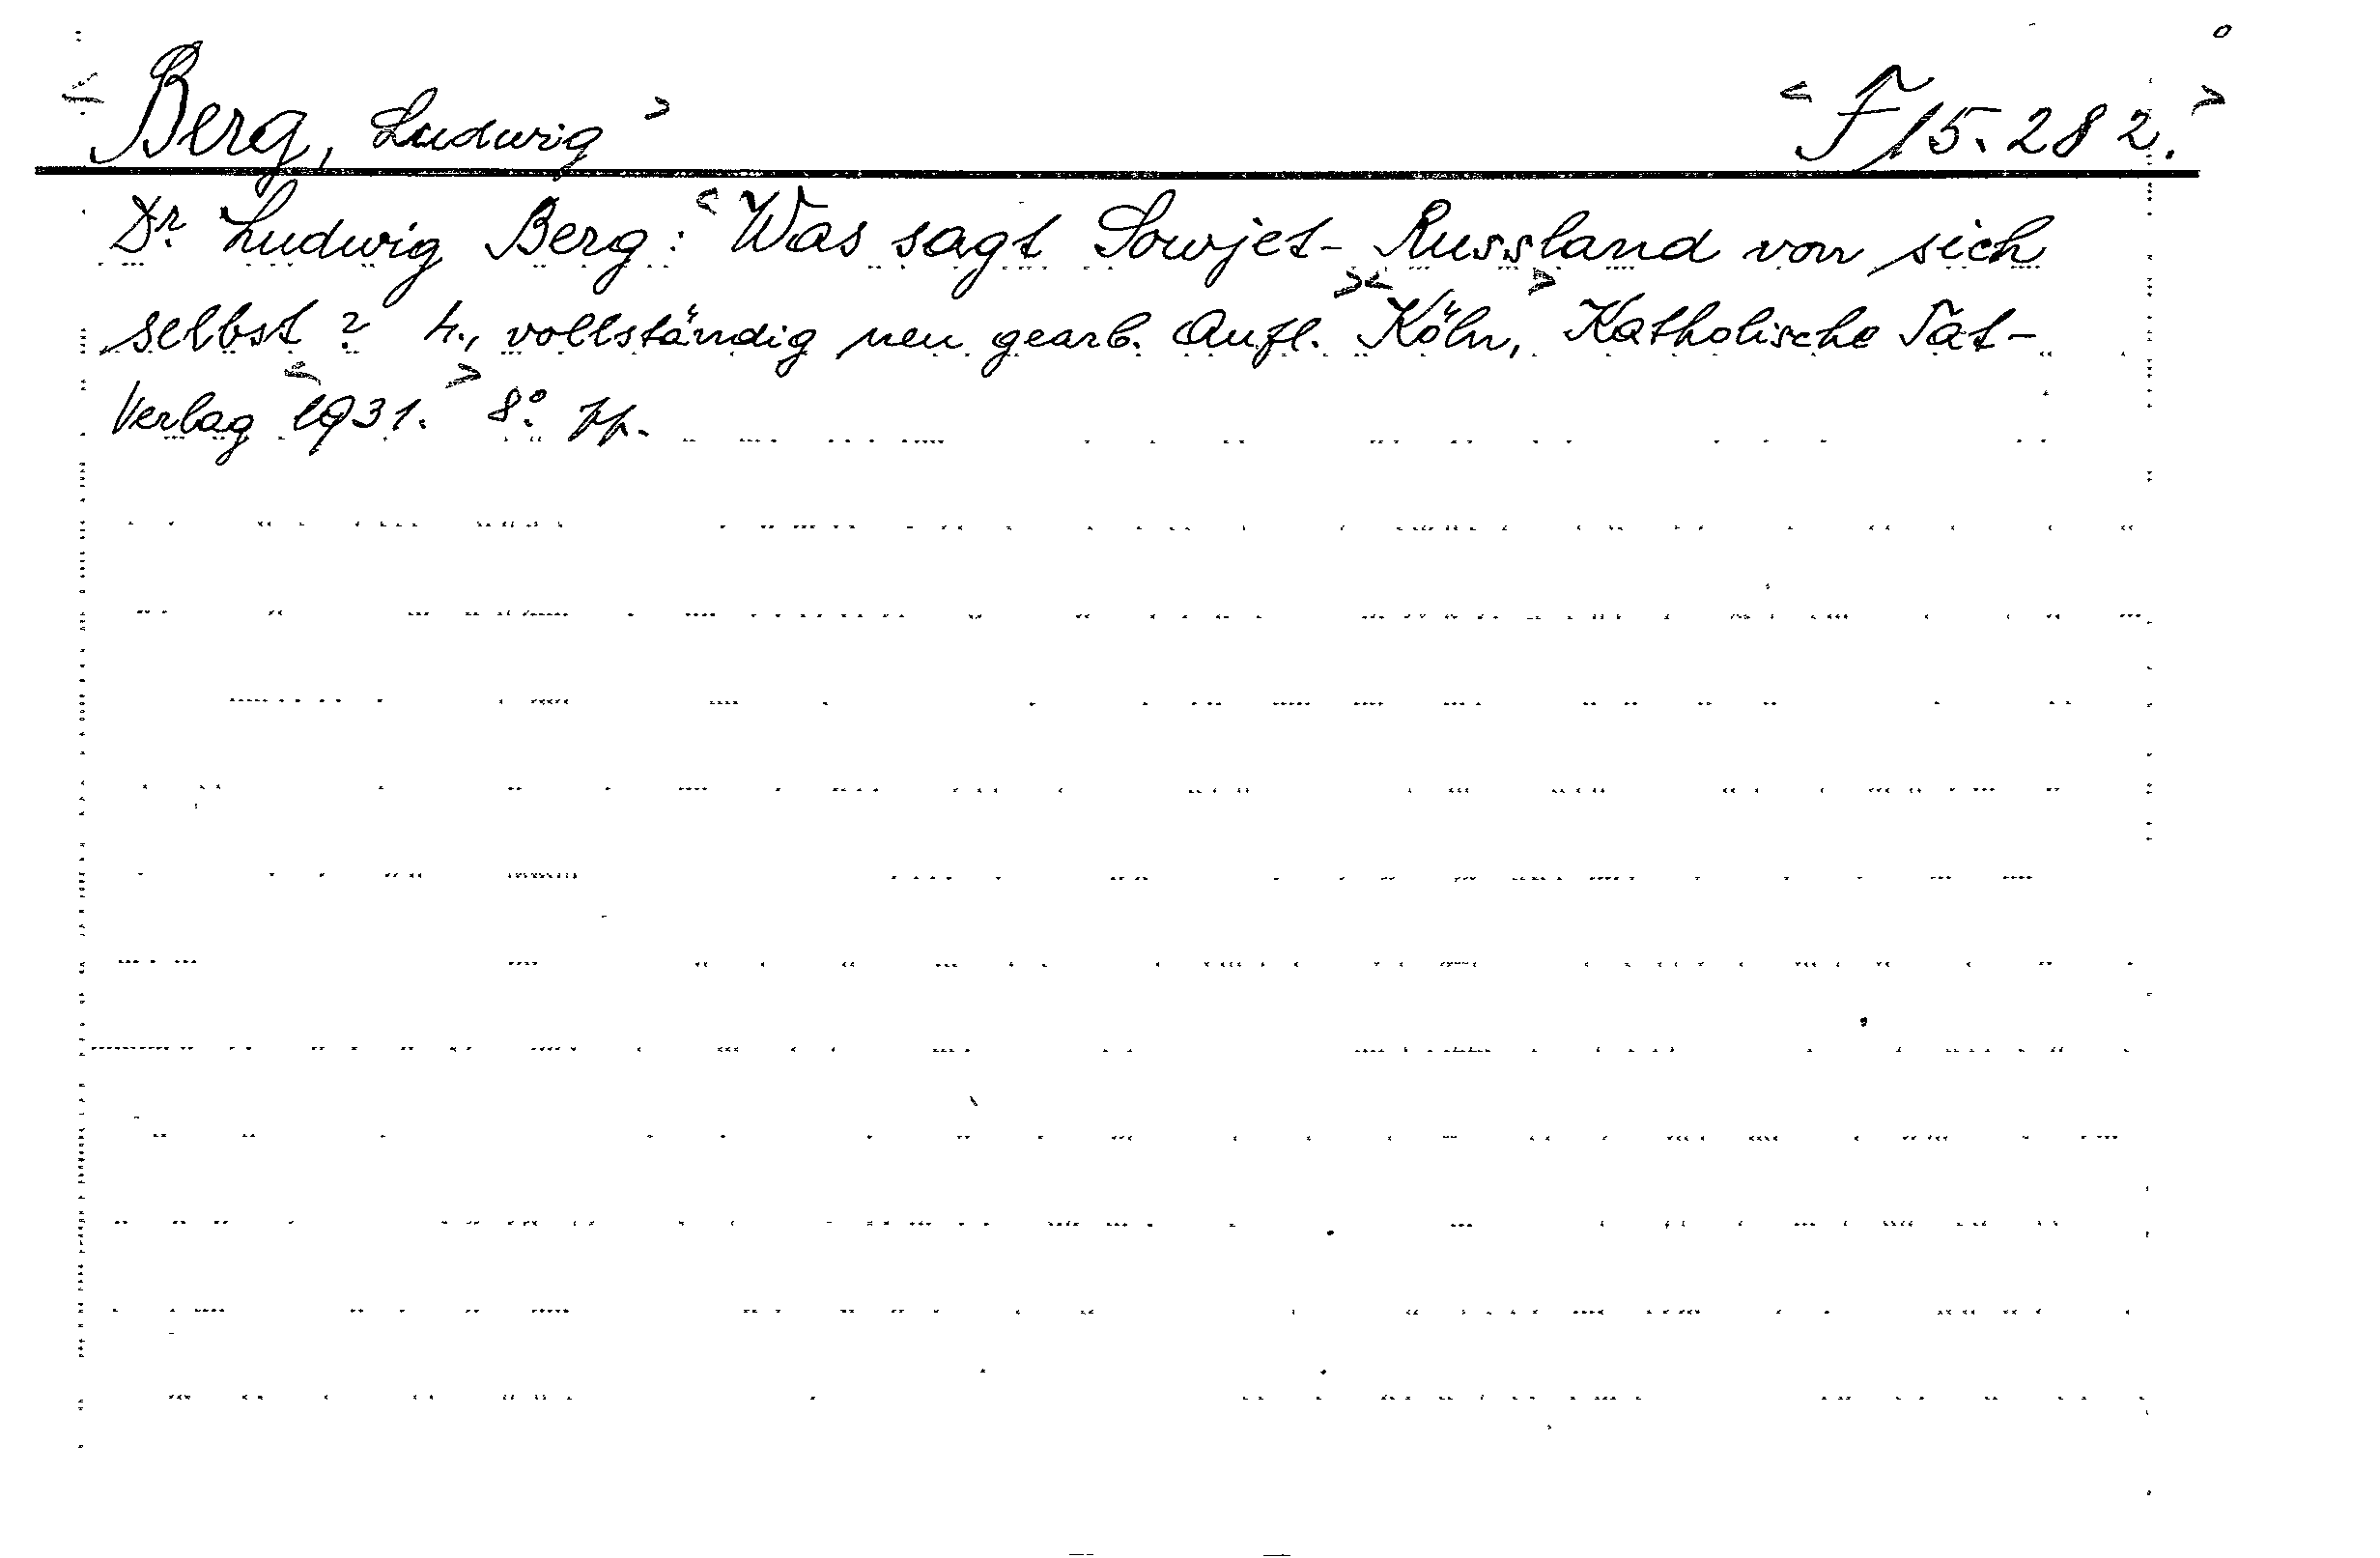 <Berg, Ludwig> <F 15.282.>
Dr. Ludwig Berg: <Was sagt Sowjet-Russland von sich
selbst? 4., vollständig neu gearb. Aufl.> <Köln,> Katholische Tat-
Verlag <1931.> 8°. pp.